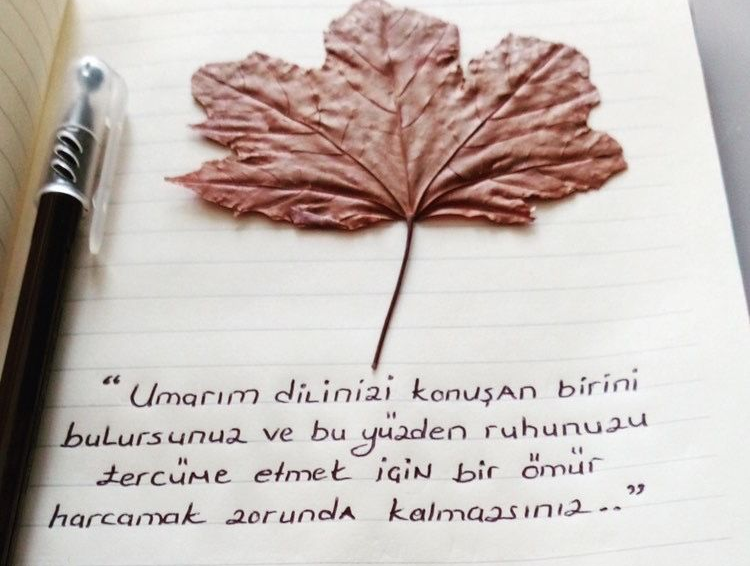 “Umarım dilinizi konuşan birini
bulursunuz ve bu yüzden ruhunuzu
tercüme etmek için bir ömür
harcamak zorunda kalmazsınız..”